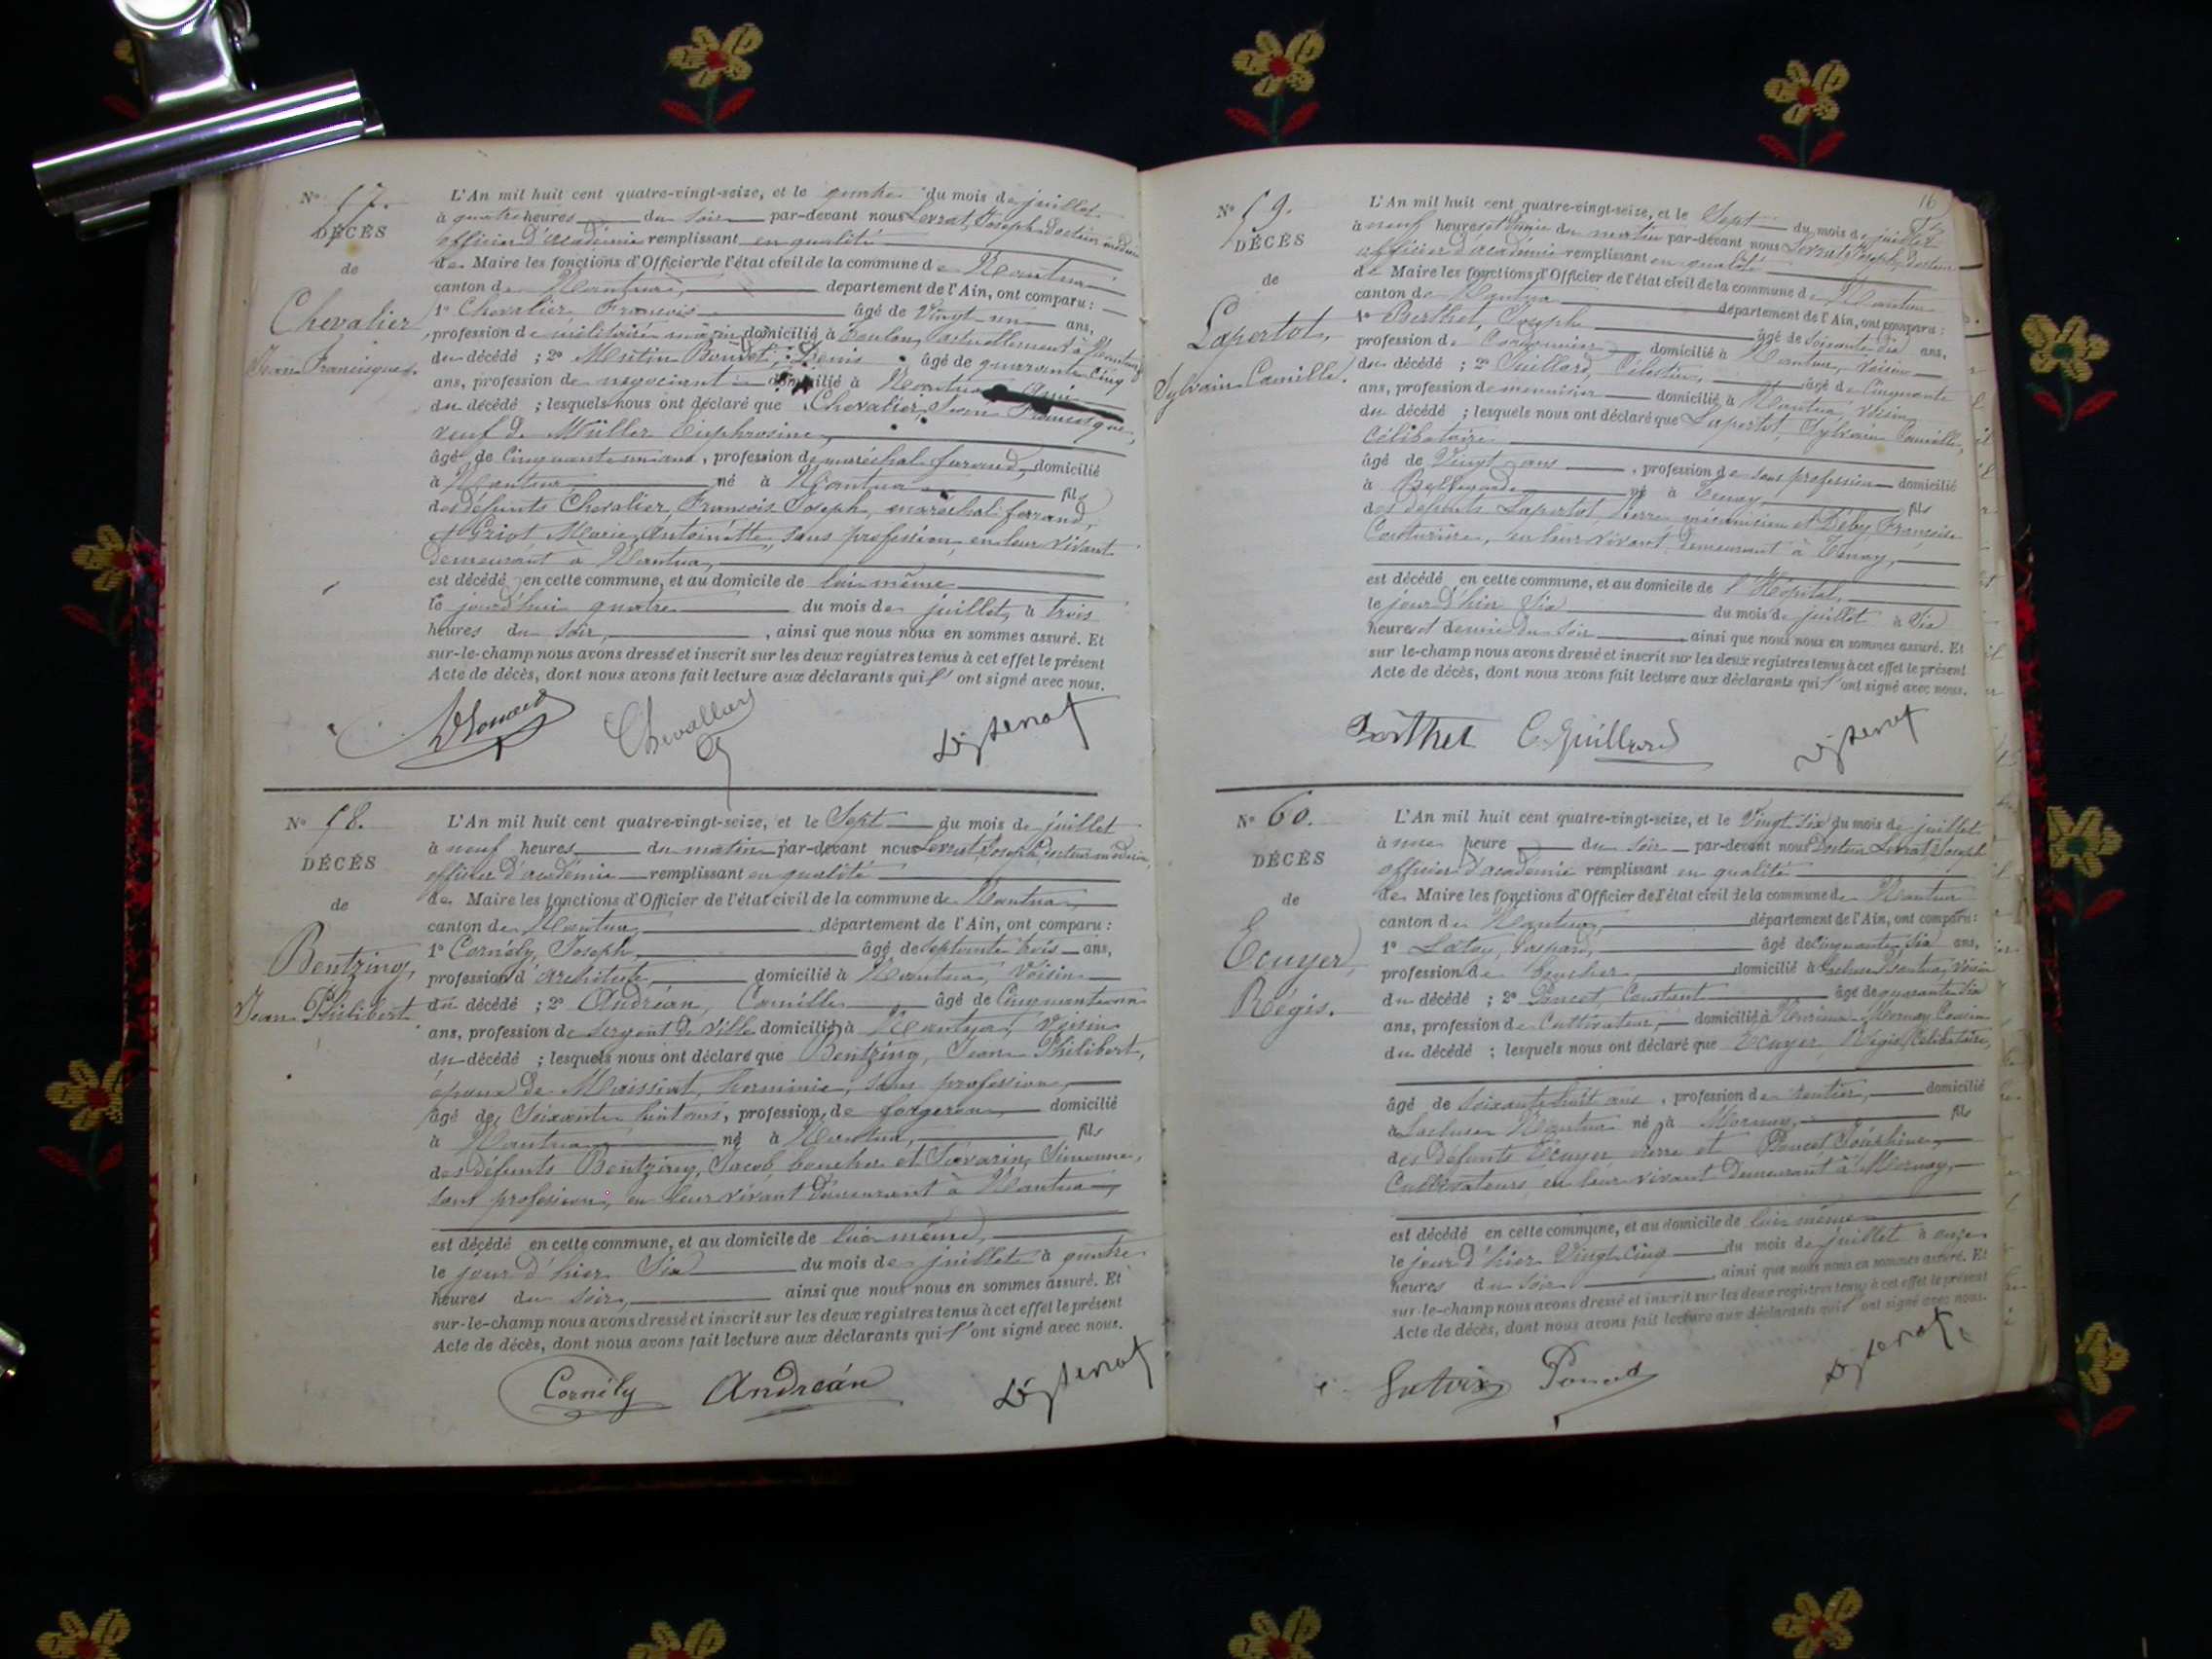 N° 57.
DÉCÈS
de
Chevalier
Jean Francisque.
L'An mil huit cent quatre-vingt-seize, et le quatre du mois de juillet
à quatre heures du soir par-devant nous Levrat, Joseph docteur médecin
officier d'académie remplissant en qualité
de Maire les fonctions d'Officier de l'état civil de la commune de Nantua
canton de Nantua, département de l'Ain, ont comparu :
1° Chevalier François âgé de Vingt un ans,
profession de militaire domicilié à Toulon, actuellement à Nantua
du décédé ; 2° Mutin Bouvet, Denis âgé de quarante cinq
ans, profession de negociant domicilié à Nantua Ami
du décédé ; lesquels nous ont déclaré que Chevalier, Jean Francisque,
veuf de Müller Euphrosine,
âgé de Cinquante un ans, profession de maréchal ferrand, domicilié
à Nantua né à Nantua fils
des défunts Chevalier, François Joseph, maréchal ferrand,
et Griot Marie Antoinette, sans profession, en leur vivant
demeurant à Nantua,
est décédé en cette commune, et au domicile de lui même
le jourd'hui quatre du mois de juillet, à trois
heures du soir, , ainsi que nous nous en sommes assuré. Et
sur-le-champ nous avons dressé et inscrit sur les deux registres tenus à cet effet le présent
Acte de décès, dont nous avons fait lecture aux déclarants qui l'ont signé avec nous.
N° 58.
DÉCÈS
de
Bentzing,
Jean Philibert
L'An mil huit cent quatre-vingt-seize, et le Sept du mois de juillet
à neuf heures du matin par-devant nous Levrat, Joseph, docteur médecin,
officier d'académie remplissant en qualité
de Maire les fonctions d'Officier de l'état civil de la commune de Nantua
canton de Nantua, département de l'Ain, ont comparu :
1° Cornély, Joseph, âgé de septante trois ans,
profession d'architecte, domicilié à Nantua, Voisin
du décédé ; 2° Andréan, Camille, âgé de Cinquante un
ans, profession de sergent de ville domicilié à Nantua, Voisin
du décédé ; lesquels nous ont déclaré que Bentzing, Jean Philibert,
époux de Maissiat, herminie, sans profession,
âgé de Soixante huit ans, profession de forgeron, domicilié
à Nantua né à Nantua, fils
des défunts Bentzing, Jacob, boucher et Savarin, Simonne,
sans profession, en leur vivant demeurant à Nantua,
est décédé en cette commune, et au domicile de lui même,
le jour d'hier Six du mois de juillet à quatre
heures du soir, ainsi que nous nous en sommes assuré. Et
sur-le-champ nous avons dressé et inscrit sur les deux registres tenus à cet effet le présent
Acte de décès, dont nous avons fait lecture aux déclarants qui l'ont signé avec nous.
Cornély Andréan
16
N° 59.
DÉCÈS
de
Lapertot,
Sylvain Camille.
L'An mil huit cent quatre-vingt-seize, et le Sept du mois de juillet
à neuf heures et demie du matin par-devant nous Levrat, Joseph, docteur
officier d'académie remplissant en qualité
de Maire les fonctions d'Officier de l'état civil de la commune de Nantua
canton de Nantua département de l'Ain, ont comparu :
1° Berthet, Joseph âgé de Soixante dix ans,
profession de Cordonnier domicilié à Nantua, voisin
du décédé ; 2° Guillard, Célestin, âgé de Cinquante
ans, profession de menuisier domicilié à Nantua, Voisin
du décédé ; lesquels nous ont déclaré que Lapertot, Sylvain Camille,
Célibataire
âgé de Vingt ans, profession de sans profession domicilié
à Bellegarde né à Tenay, fils
des défunts Lapertot, Pierre mécanicien et Déby, Françoise
Couturière, en leur vivant demeurant à Tenay,
est décédé en cette commune, et au domicile de l'Hôpital,
le jour d'hier Six du mois de juillet à Six
heures et demie du soir ainsi que nous nous en sommes assuré. Et
sur le-champ nous avons dressé et inscrit sur les deux registres tenus à cet effet le présent
Acte de décès, dont nous avons fait lecture aux déclarants qui l'ont signé avec nous.
Berthet C. Guillard
N° 60.
DÉCÈS
de
Ecuyer,
Régis.
L'An mil huit cent quatre-vingt-seize, et le Vingt Six du mois de juillet
à une heure du soir par-devant nous Docteur Levrat, Joseph
officier d'académie remplissant en qualité
de Maire les fonctions d'Officier de l'état civil de la commune de Nantua
canton de Nantua, département de l'Ain, ont comparu :
1° Gaspard, âgé de Cinquante Six ans,
profession de boucher domicilié à Lacluse Nantua, Voisin
du décédé ; 2° Poncet, Constant âgé de quarante Six
ans, profession de Cultivateur, domicilié à Mornay, Cousin
du décédé ; lesquels nous ont déclaré que Ecuyer, Régis, Célibataire,
âgé de Soixante huit ans, profession de rentier, domicilié
à Lacluse Nantua né à Mornay, fils
des défunts Ecuyer Pierre et Poncet Joséphine,
Cultivateurs en leur vivant demeurant à Mornay,
est décédé en cette commune, et au domicile de lui même
le jour d'hier Vingt Cinq du mois de juillet à onze
heures du soir , ainsi que nous nous en sommes assuré. Et
sur-le-champ nous avons dressé et inscrit sur les deux registres tenus à cet effet le présent
Acte de décès, dont nous avons fait lecture aux déclarants qui l'ont signé avec nous.